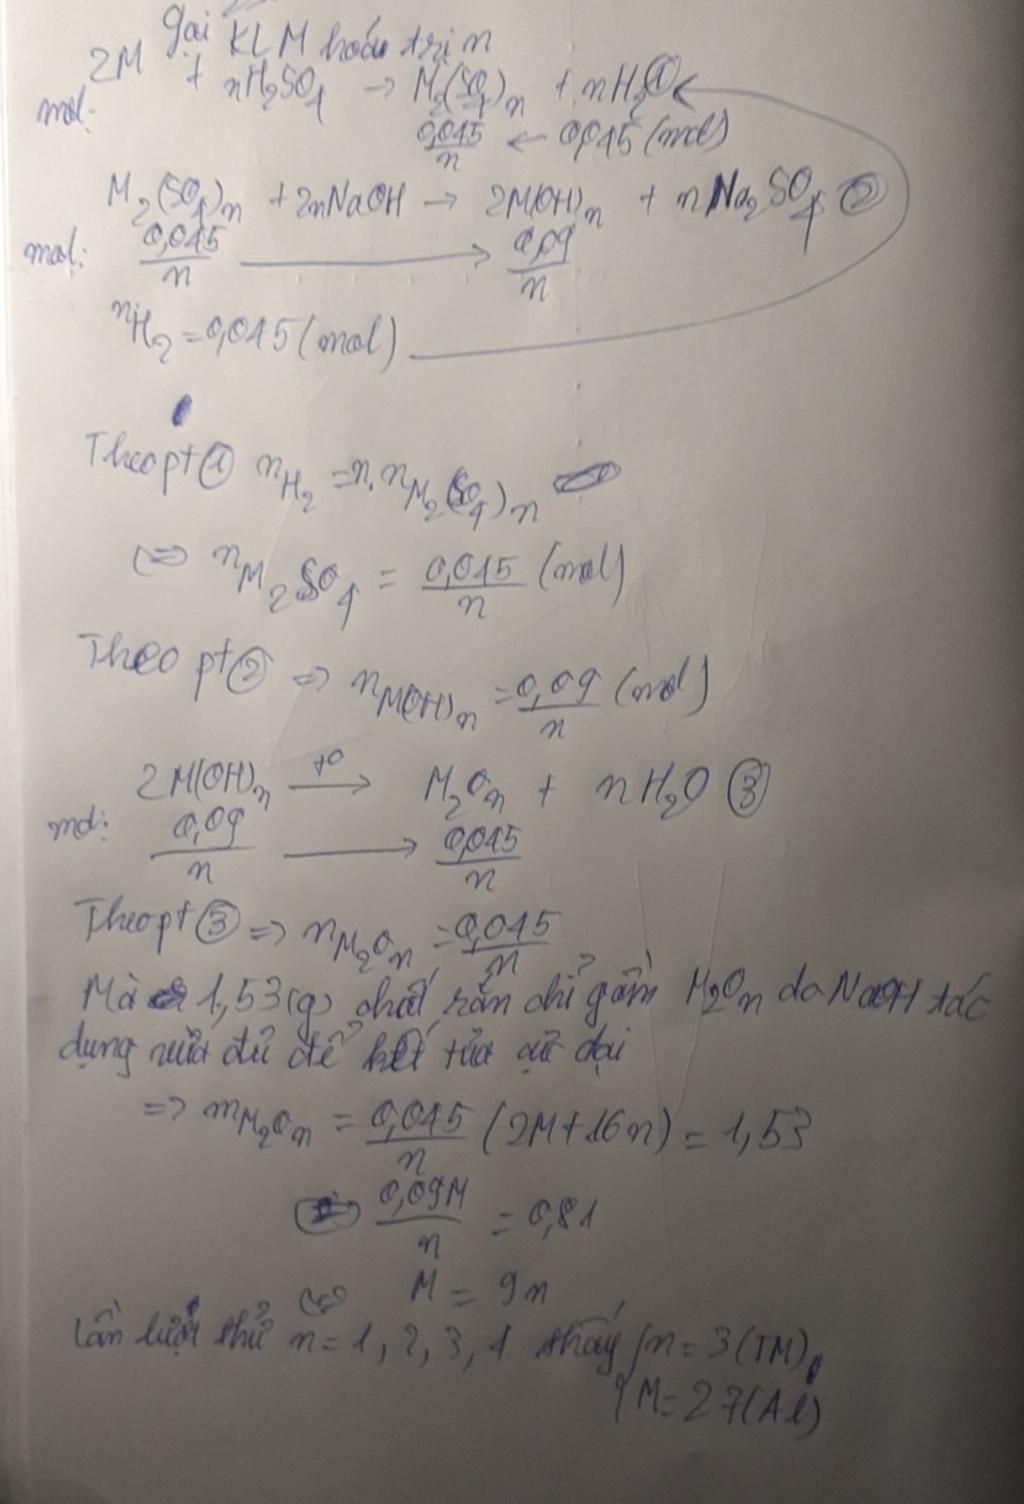 Gọi KLM hoá trị n
2M + nH₂SO₄ → M₂(SO₄)n + nH₂ ①
mol: 0,045/n ← 0,045 (mol)
M₂(SO₄)n + 2nNaOH → 2M(OH)n + nNa₂SO₄ ②
mol: 0,045/n → 0,09/n
nH₂ = 0,045 (mol)
Theo pt ① nH₂ = n.nM₂(SO₄)n
⇔ nM₂SO₄ = 0,045/n (mol)
Theo pt ② ⇒ nM(OH)n = 0,09/n (mol)
2M(OH)n →(t°) M₂On + nH₂O ③
mol: 0,09/n → 0,045/n
Theo pt ③ ⇒ nM₂On = 0,045/n
Mà 1,53(g) chất rắn chỉ gồm M₂On do NaOH tác
dụng vừa đủ để kết tủa cực đại
⇒ mM₂On = 0,045/n (2M+16n) = 1,53
⇔ 0,09M/n = 0,81
⇔ M = 9n
Lần lượt thử n = 1, 2, 3, 4 thấy { n = 3 (TM)
M = 27 (Al)